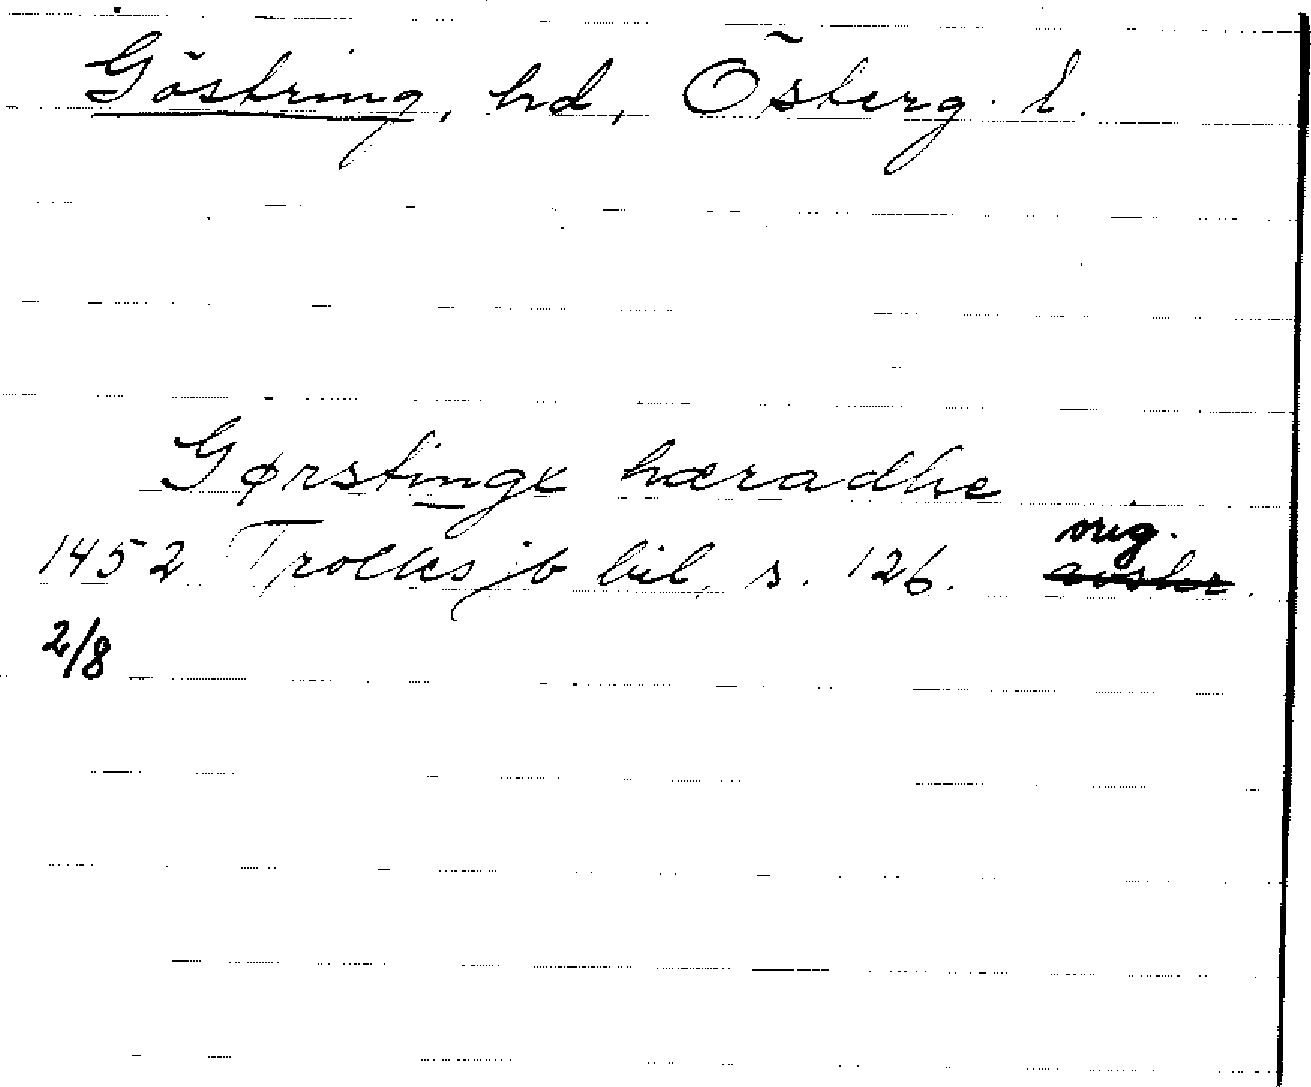 Göstring, hd, Österg. l.
Gørstinge hæradhe
orig.
1452 Trolles jb bil. s. 126. avskr.
2/8